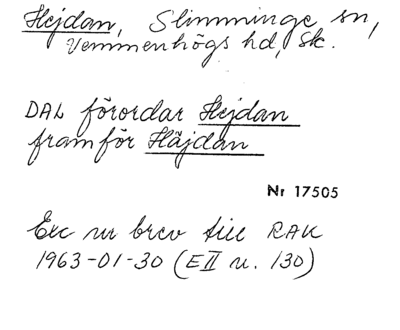 Hejdan, Slimminge sn,
Vemmenhögs hd, Sk.
DAL förordar Hejdan
framför Häjdan
Nr 17505
Exc ur brev till RAK
1963-01-30 (EII u. 130)